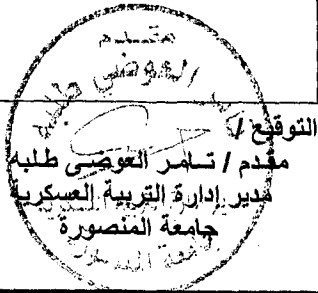 مقدم
العوضي طلبه
التوقيع /
مقدم / تامر العوضى طلبه
مدير إدارة التربية العسكرية
جامعة المنصورة